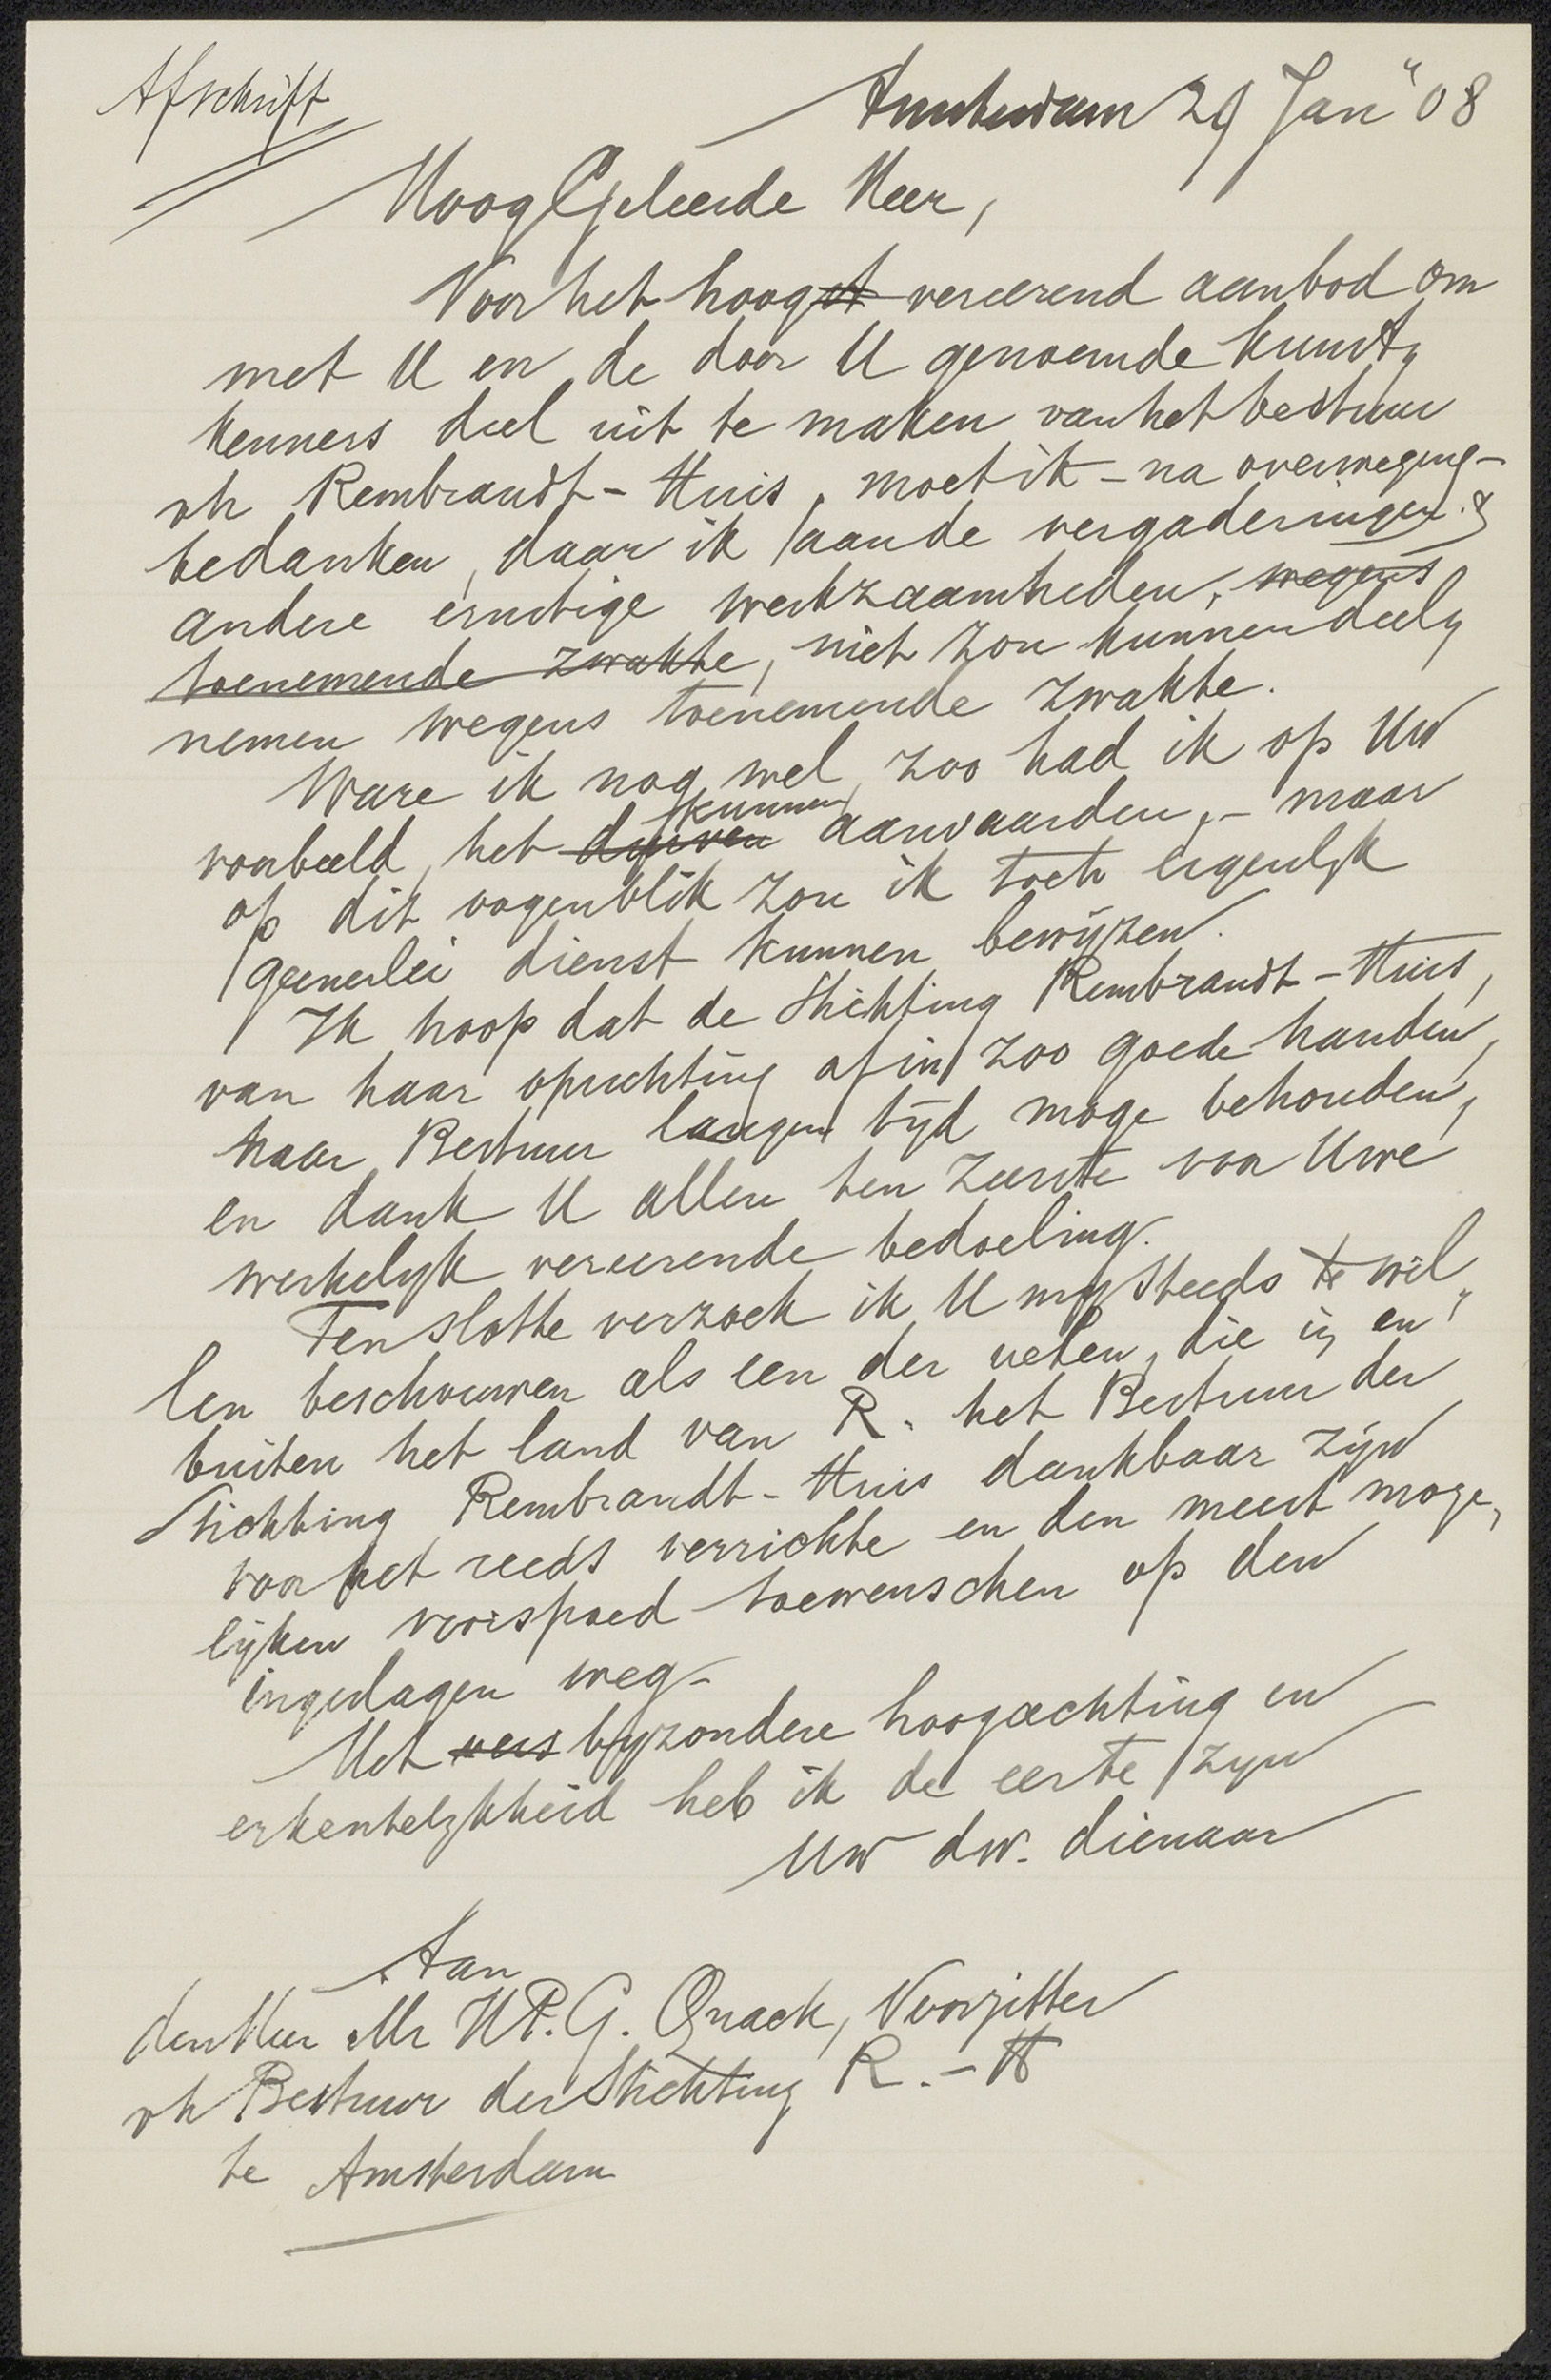 Afschrift
Amsterdam 29 Jan "08
HoogGeleerde Heer,
Voor het hoogst vereerend aanbod om
met U en de door U genoemde kunst,
kenners deel uit te maken van het bestuur
vh Rembrandt-Huis, moet ik - na overweging -
bedanken, daar ik aan de vergaderingen &
andere ernstige werkzaamheden, wegens
toenemende zwakte, niet zou kunnen deel,
nemen wegens toenemende zwakte.
Ware ik nog wel, zoo had ik op Uw
kunnen
voorbeeld, het durven aanvaarden, - maar
op dit oogenblik zou ik toch eigenlyk
geenerlei dienst kunnen bewyzen.
Ik hoop dat de Stichting Rembrandt-Huis,
van haar oprichting af in zoo goede handen,
haar Bestuur langen tyd moge behouden,
en dank U allen ten zeerste voor Uwe
werkelyk vereerende bedoeling.
Ten slotte verzoek ik U my steeds te wil,,
len beschouwen als een der velen, die in en
buiten het land van R. het Bestuur der
Stichting Rembrandt-Huis dankbaar zyn
voor het reeds verrichte en den meest moge,
lyken voorspoed toewenschen op den
ingeslagen weg.
Met vers byzondere hoogachting en
erkentelykheid heb ik de eer te zyn
Uw dw. dienaar
Aan
den Heer Mr H.P.G. Quack, Voorzitter
vh Bestuur der Stichting R.-H
te Amsterdam